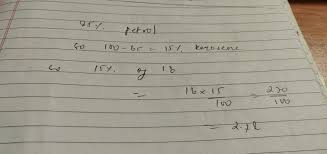 85% petrol
So 100-85 = 15% kerosene
15% of 18
= 18 x 15 / 100 = 270 / 100
= 2.7 l